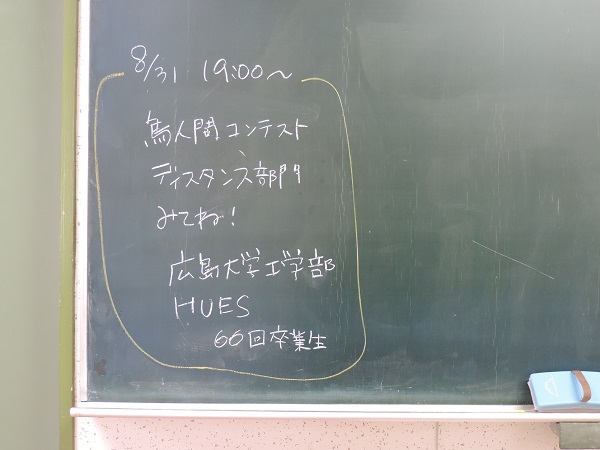 8/31 19:00〜
鳥人間コンテスト
ディスタンス部門
みてね!
広島大学工学部
HUES
60回卒業生